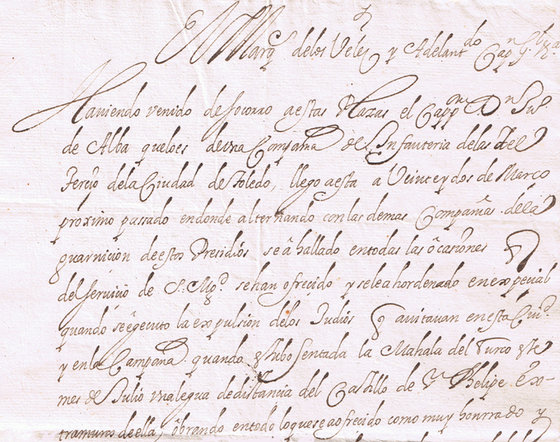 El Marqs. de los Velez y Adelantdo Capn. Gl. &a
Haviendo venido de socorro a estas Plazas el Cappn. Dn. Luis
de Alba que lo es de una Compañia de Infanteria de las del
Terçio de la Ciudad de Toledo, llego a esta a Veinte y dos de Março
proximo passado en donde alternando con las demas Compañias de la
guarnicion de estos Presidios, se â hallado en todas las ôcasiones q
del serviçio de S. Mgd. se han ofrecido y se le a hordenado en expecial
quando se ègecuto la expulsion de los Judiòs q avitavan en esta Ciud.
y en la Campaña quando estubo sentada la Mahala del Turco este
mes de Julio una legua de distancia del Castillo de Sn. Phelipe Ex-
tramuros de ella, ôbrando en todo lo que se a ofrecido como muy honrrado y